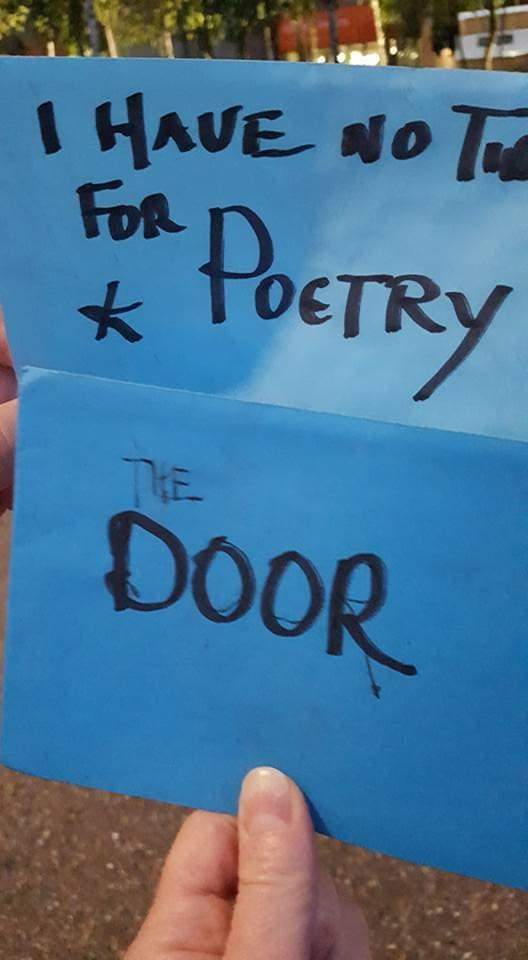 I HAVE NO
FOR
* POETRY
THE
DOOR